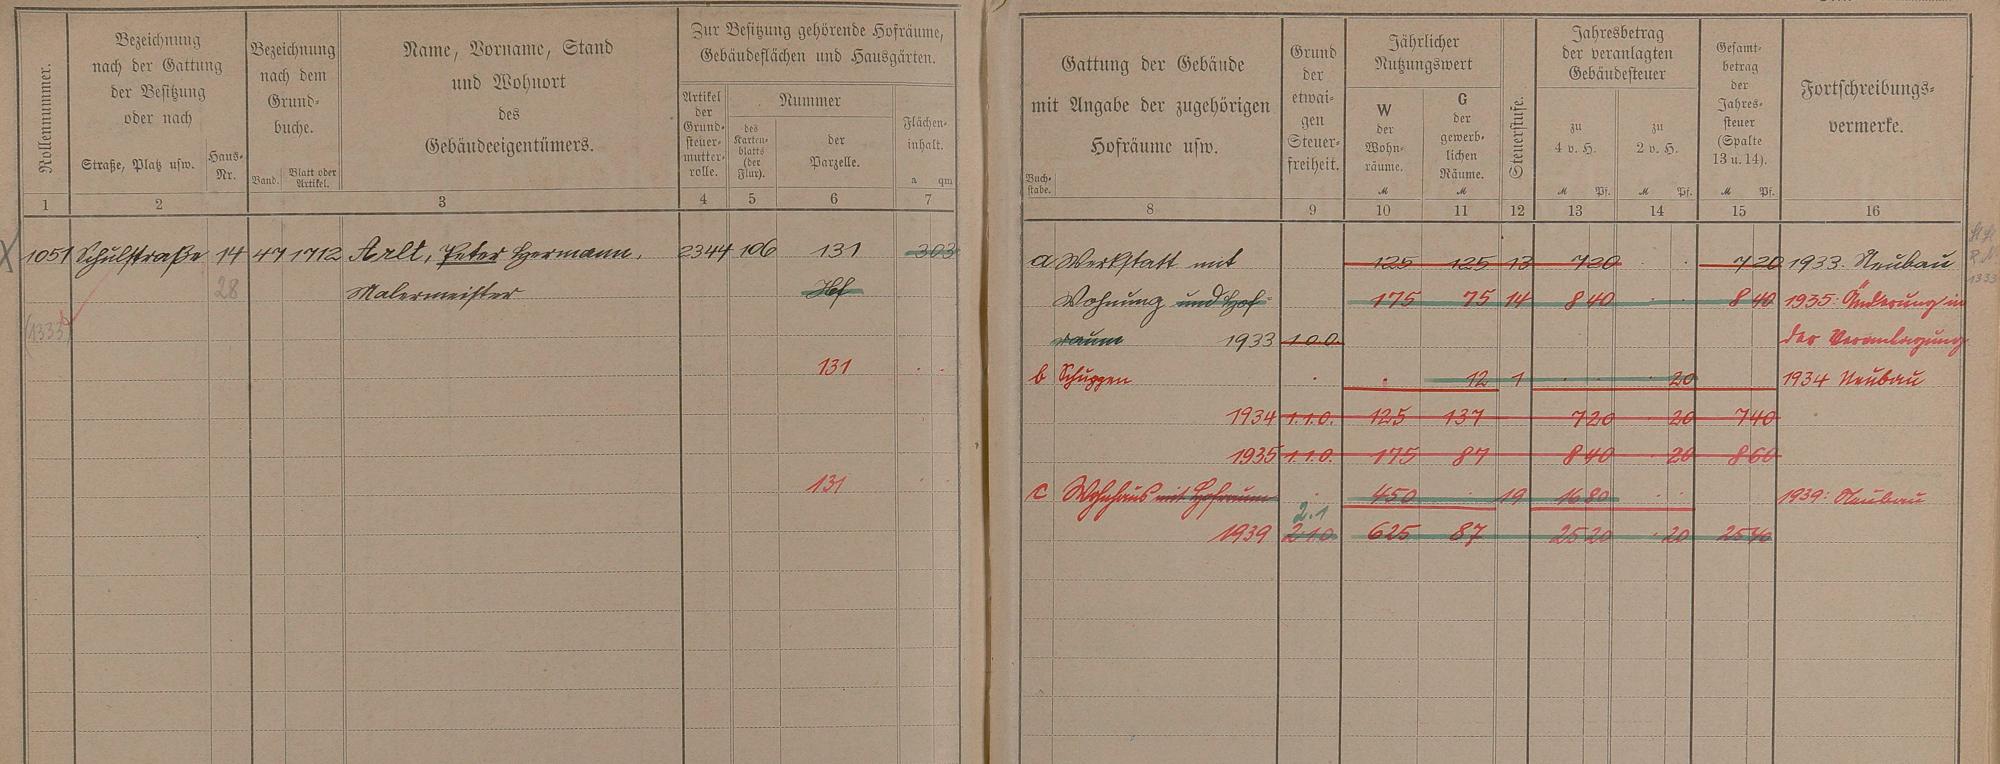 Rollennummer.
Bezeichnung
nach der Gattung
der Besitzung
oder nach
Straße, Platz usw.
Haus-
Nr.
Bezeichnung
nach dem
Grund-
buche.
Band.
Blatt oder
Artikel.
Name, Vorname, Stand
und Wohnort
des
Gebäudeeigentümers.
Zur Besitzung gehörende Hofräume,
Gebäudeflächen und Hausgärten.
Artikel
der
Grund-
steuer-
mutter-
rolle.
Nummer
des
Karten-
blatts
(der
Flur).
der
Parzelle.
Flächen-
inhalt.
a qm
1 2 3 4 5 6 7
1051 Schulstraße 14 47 1712 Arlt, Peter Hermann, 2344 106 131 303
28 Malermeister Hf
(1333)
131
131
Gattung der Gebäude
mit Angabe der zugehörigen
Hofräume usw.
Buch-
stabe.
Grund
der
etwai-
gen
Steuer-
freiheit.
Jährlicher
Nutzungswert
W
der
Wohn-
räume.
M
G
der
gewerb-
lichen
Räume.
M
Steuerstufe.
Jahresbetrag
der veranlagten
Gebäudesteuer
zu
4 v. H.
M Pf.
zu
2 v. H.
M Pf.
Gesamt-
betrag
der
Jahres-
steuer
(Spalte
13 u. 14).
M Pf.
Fortschreibungs-
vermerke.
8 9 10 11 12 13 14 15 16
a Werkstatt mit 125 125 13 7 20 · · 7 20 1933: Neubau
Wohnung und Hof- 175 75 14 8 40 · · 8 40 1935: Änderung in
raum 1933 1.0.0. der Veranlagung
b Schuppen · · 12 1 · · · 20 1934 Neubau
1934 1.1.0. 125 137 7 20 · 20 7 40
1935 1.1.0. 175 87 8 40 · 20 8 60
c Wohnhaus mit Hofraum · 450 · 19 16 80 · · 1939: Neubau
2.1
1939 2.1.0 625 87 25 20 · 20 25 40
1333